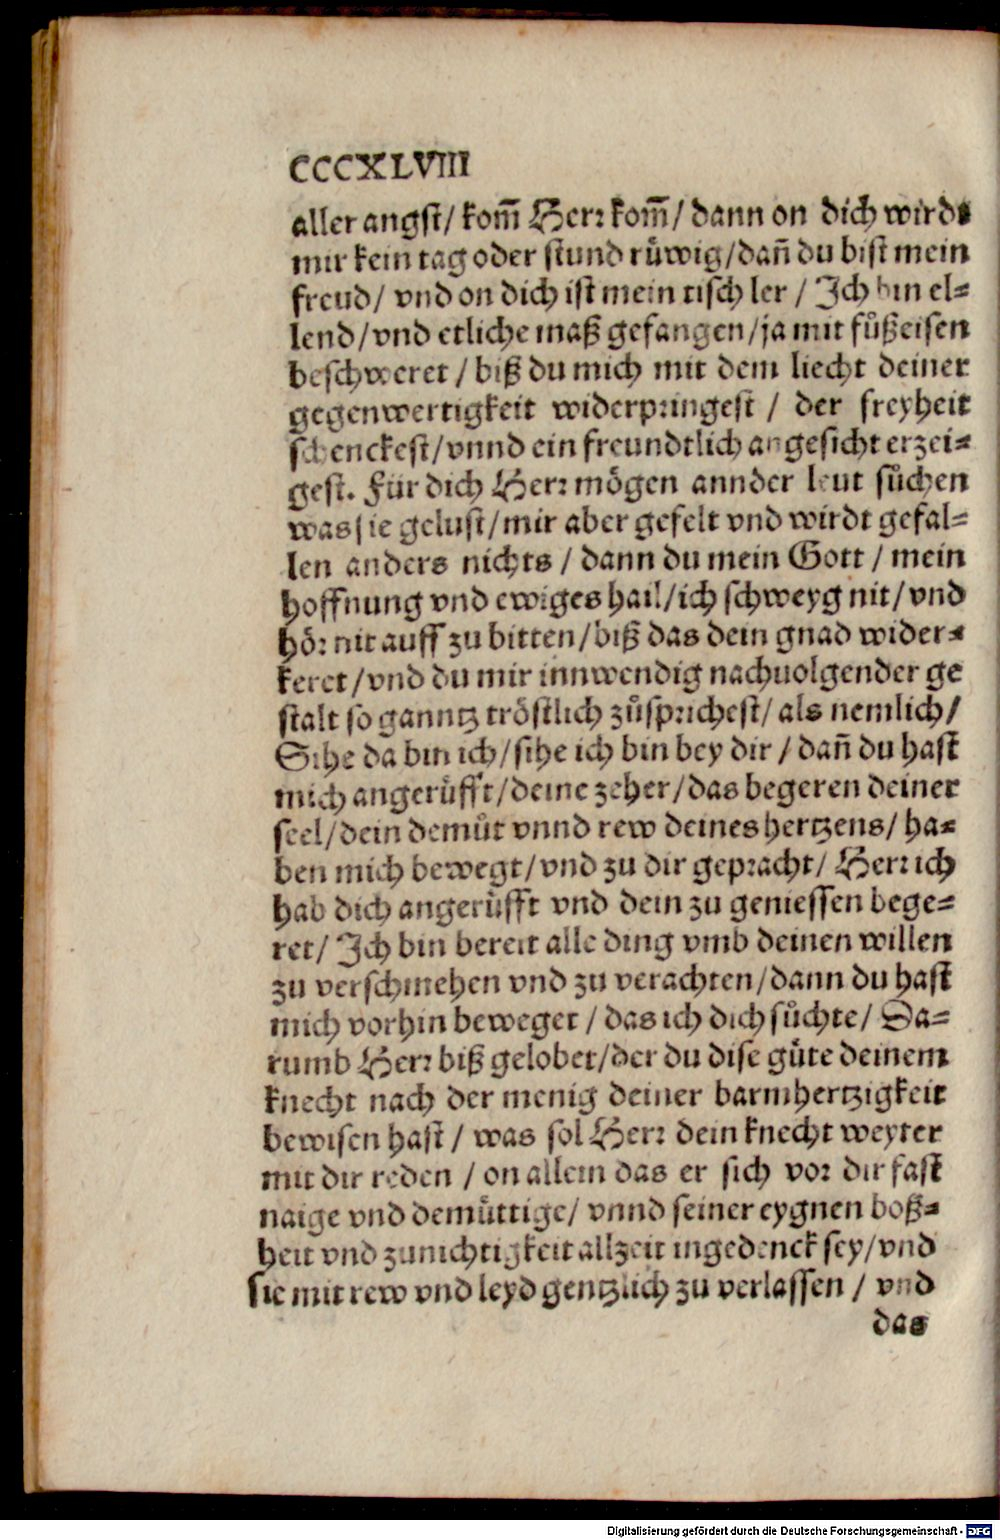 CCCXLVIII
aller angst/ kom̄ Herr kom̄/ dann on dich wirdt
mir kein tag oder stund růwig/dañ du bist mein
freud/ vnd on dich ist mein tisch ler / Ich bin el=
lend/vnd etliche maß gefangen/ja mit fůßeisen
beschweret / biß du mich mit dem liecht deiner
gegenwertigkeit widerpringest / der freyheit
schenckest/vnnd ein freundtlich angesicht erzei=
gest. Für dich Herr mögen annder leut sůchen
was sie gelust/mir aber gefelt vnd wirdt gefal=
len anders nichts / dann du mein Gott / mein
hoffnung vnd ewiges hail/ich schweyg nit/vnd
hör nit auff zu bitten/biß das dein gnad wider=
keret/vnd du mir innwendig nachuolgender ge
stalt so ganntz tröstlich zůsprichest/ als nemlich/
Sihe da bin ich/sihe ich bin bey dir / dañ du hast
mich angerůfft/deine zeher/das begeren deiner
seel/dein demůt vnnd rew deines hertzens/ ha=
ben mich bewegt/vnd zu dir gepracht/ Herr ich
hab dich angerůfft vnd dein zu geniessen bege=
ret/ Ich bin bereit alle ding vmb deinen willen
zu verschmehen vnd zu verachten/dann du hast
mich vorhin beweget / das ich dich sůchte/ Da=
rumb Herr biß gelobet/der du dise gůte deinem
knecht nach der menig deiner barmhertzigkeit
bewisen hast / was sol Herr dein knecht weyter
mit dir reden / on allein das er sich vor dir fast
naige vnd demůttige/ vnnd seiner eygnen boß=
heit vnd zunichtigkeit allzeit ingedenck sey/vnd
sie mit rew vnd leyd gentzlich zu verlassen / vnd
das
Digitalisierung gefördert durch die Deutsche Forschungsgemeinschaft - DFG